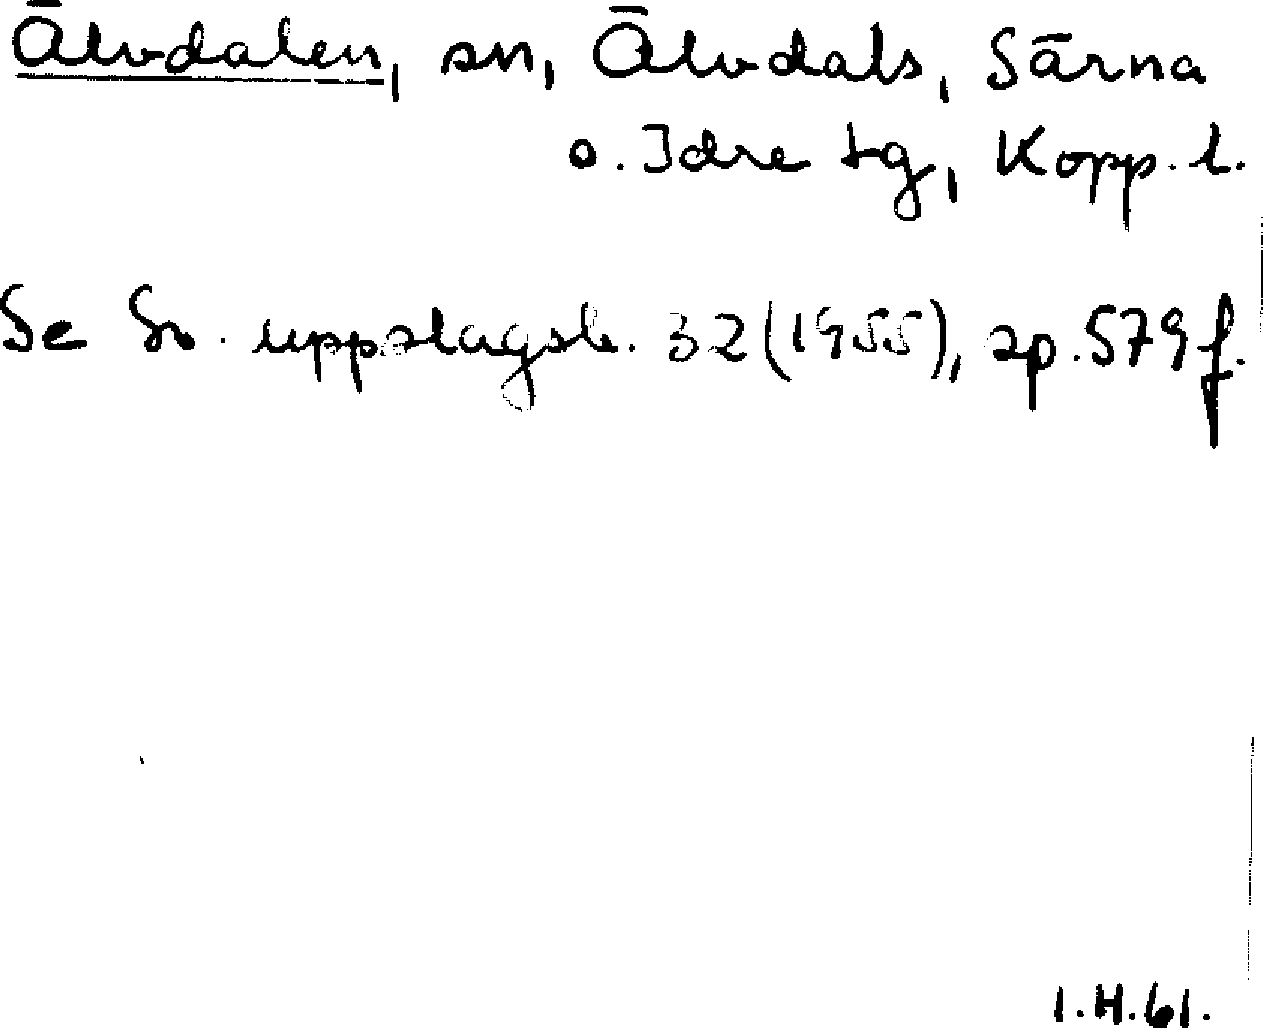 Älvdalen, sn, Älvdals, Särna
o. Idre tg, Kopp. l.
Se Sv. uppslagsb. 32 (1955), sp. 579 f.
I.H.61.